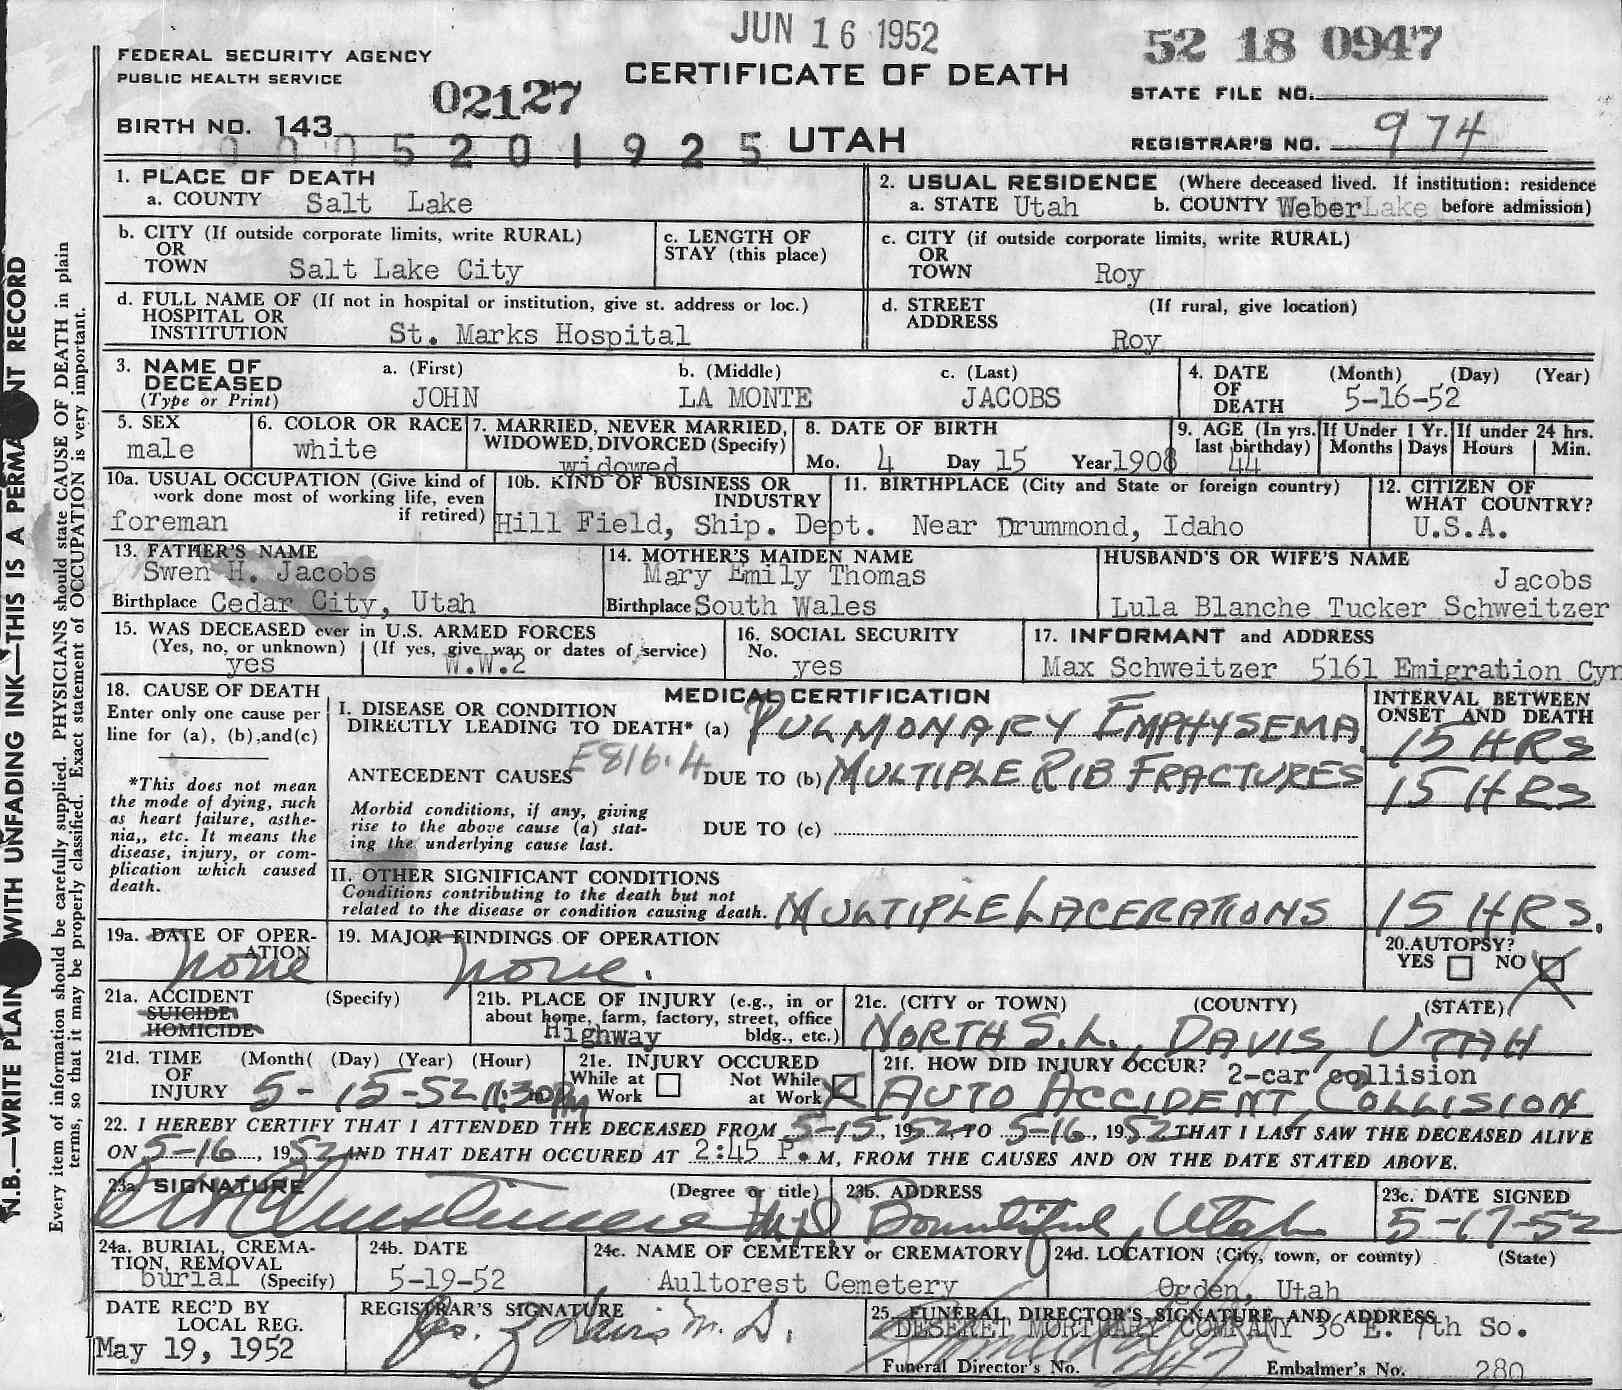 JUN 16 1952
52 18 0947
FEDERAL SECURITY AGENCY
PUBLIC HEALTH SERVICE
02127
CERTIFICATE OF DEATH
STATE FILE NO.
BIRTH NO. 143
0005201925
UTAH
REGISTRAR'S NO. 974
1. PLACE OF DEATH
a. COUNTY Salt Lake
2. USUAL RESIDENCE (Where deceased lived. If institution: residence
a. STATE Utah b. COUNTY Weber Lake before admission)
b. CITY (If outside corporate limits, write RURAL)
OR
TOWN Salt Lake City
c. LENGTH OF
STAY (this place)
c. CITY (if outside corporate limits, write RURAL)
OR
TOWN Roy
d. FULL NAME OF (If not in hospital or institution, give st. address or loc.)
HOSPITAL OR
INSTITUTION St. Marks Hospital
d. STREET (If rural, give location)
ADDRESS
Roy
3. NAME OF
DECEASED
(Type or Print)
a. (First) b. (Middle) c. (Last)
JOHN LA MONTE JACOBS
4. DATE (Month) (Day) (Year)
OF
DEATH 5-16-52
5. SEX
male
6. COLOR OR RACE
white
7. MARRIED, NEVER MARRIED,
WIDOWED, DIVORCED (Specify)
widowed
8. DATE OF BIRTH
Mo. 4 Day 15 Year 1908
9. AGE (In yrs.
last birthday)
44
If Under 1 Yr.
Months Days
If under 24 hrs.
Hours Min.
10a. USUAL OCCUPATION (Give kind of
work done most of working life, even
if retired)
foreman
10b. KIND OF BUSINESS OR
INDUSTRY
Hill Field, Ship. Dept.
11. BIRTHPLACE (City and State or foreign country)
Near Drummond, Idaho
12. CITIZEN OF
WHAT COUNTRY?
U.S.A.
13. FATHER'S NAME
Swen H. Jacobs
Birthplace Cedar City, Utah
14. MOTHER'S MAIDEN NAME
Mary Emily Thomas
Birthplace South Wales
HUSBAND'S OR WIFE'S NAME
Jacobs
Lula Blanche Tucker Schweitzer
15. WAS DECEASED ever in U.S. ARMED FORCES
(Yes, no, or unknown) (If yes, give war or dates of service)
yes W.W.2
16. SOCIAL SECURITY
No.
yes
17. INFORMANT and ADDRESS
Max Schweitzer 5161 Emigration Cyn
18. CAUSE OF DEATH
Enter only one cause per
line for (a), (b), and (c)
*This does not mean
the mode of dying, such
as heart failure, asthe-
nia,, etc. It means the
disease, injury, or com-
plication which caused
death.
MEDICAL CERTIFICATION
I. DISEASE OR CONDITION
DIRECTLY LEADING TO DEATH* (a) PULMONARY EMPHYSEMA
E816.4
ANTECEDENT CAUSES DUE TO (b) MULTIPLE RIB FRACTURES
Morbid conditions, if any, giving
rise to the above cause (a) stat-
ing the underlying cause last.
DUE TO (c)
INTERVAL BETWEEN
ONSET AND DEATH
15 HRS
15 HRS
II. OTHER SIGNIFICANT CONDITIONS
Conditions contributing to the death but not
related to the disease or condition causing death. MULTIPLE LACERATIONS 15 HRS.
19a. DATE OF OPER-
ATION
none
19. MAJOR FINDINGS OF OPERATION
none.
20. AUTOPSY?
YES NO
21a. ACCIDENT (Specify)
SUICIDE
HOMICIDE
21b. PLACE OF INJURY (e.g., in or
about home, farm, factory, street, office
bldg., etc.)
Highway
21c. (CITY or TOWN) (COUNTY) (STATE)
NORTH S.L., DAVIS, UTAH
21d. TIME (Month( (Day) (Year) (Hour)
OF
INJURY 5-15-52 11:30 PM
21e. INJURY OCCURED
While at Work Not While at Work
21f. HOW DID INJURY OCCUR? 2-car collision
AUTO ACCIDENT, COLLISION
22. I HEREBY CERTIFY THAT I ATTENDED THE DECEASED FROM 5-15, 1952, TO 5-16, 1952 THAT I LAST SAW THE DECEASED ALIVE
ON 5-16, 1952 AND THAT DEATH OCCURED AT 2:45 P.M, FROM THE CAUSES AND ON THE DATE STATED ABOVE.
23a. SIGNATURE (Degree or title)
M.D.
23b. ADDRESS
Bountiful, Utah
23c. DATE SIGNED
5-17-52
24a. BURIAL, CREMA-
TION, REMOVAL
burial (Specify)
24b. DATE
5-19-52
24c. NAME OF CEMETERY or CREMATORY
Aultorest Cemetery
24d. LOCATION (City, town, or county) (State)
Ogden, Utah
DATE REC'D BY
LOCAL REG.
May 19, 1952
REGISTRAR'S SIGNATURE
M.D.
25. FUNERAL DIRECTOR'S SIGNATURE AND ADDRESS
DESERET MORTUARY COMPANY 36 E. 7th So.
Funeral Director's No. 247 Embalmer's No. 280
N.B.—WRITE PLAIN WITH UNFADING INK—THIS IS A PERMANENT RECORD
Every item of information should be carefully supplied. PHYSICIANS should state CAUSE OF DEATH in plain
terms, so that it may be properly classified. Exact statement of OCCUPATION is very important.